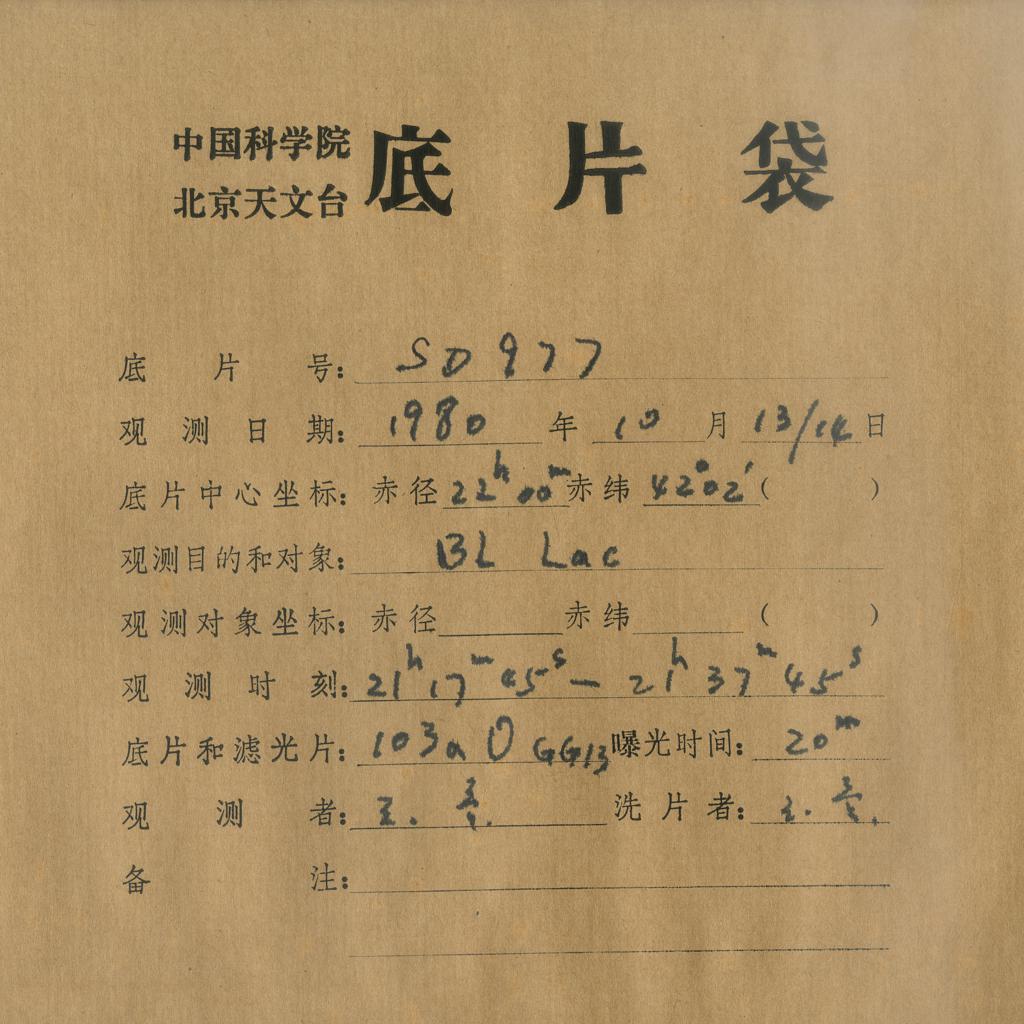 中国科学院
北京天文台
底片袋
底片号: SD977
观测日期: 1980年10月13/14日
底片中心坐标: 赤径22ʰ00ᵐ赤纬42°02′( )
观测目的和对象: BL Lac
观测对象坐标: 赤径 赤纬 ( )
观测时刻: 21ʰ17ᵐ45ˢ—21ʰ37ᵐ45ˢ
底片和滤光片: 103aO GG13 曝光时间: 20ᵐ
观测者: 王. 洗片者: 王.
备注: